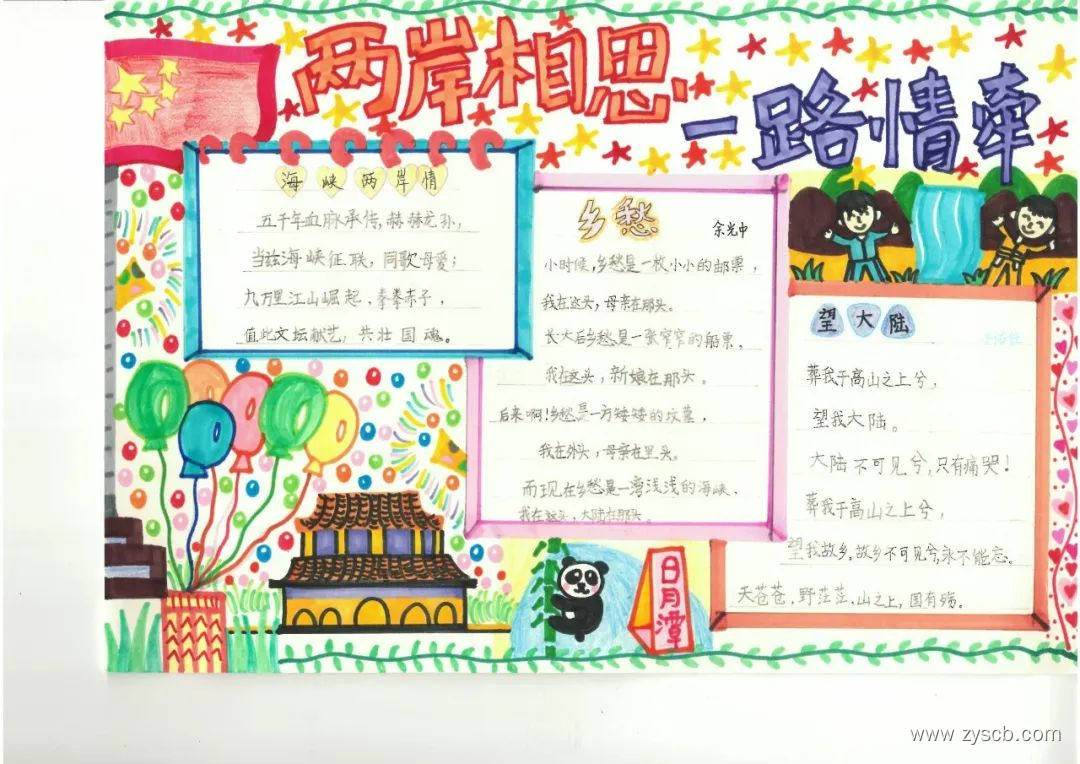 两岸相思
一路情牵
海峡两岸情
五千年血脉承传,赫赫龙孙,
当兹海峡征联,同歌母爱;
九万里江山崛起,拳拳赤子,
值此文坛献艺,共壮国魂。
乡愁
余光中
小时候,乡愁是一枚小小的邮票,
我在这头,母亲在那头。
长大后乡愁是一张窄窄的船票,
我在这头,新娘在那头。
后来啊!乡愁是一方矮矮的坟墓,
我在外头,母亲在里头。
而现在乡愁是一湾浅浅的海峡,
我在这头,大陆在那头。
望大陆
葬我于高山之上兮,
望我大陆。
大陆不可见兮,只有痛哭!
葬我于高山之上兮,
望我故乡,故乡不可见兮,永不能忘。
天苍苍,野茫茫,山之上,国有殇。
日月潭
www.zyscb.com